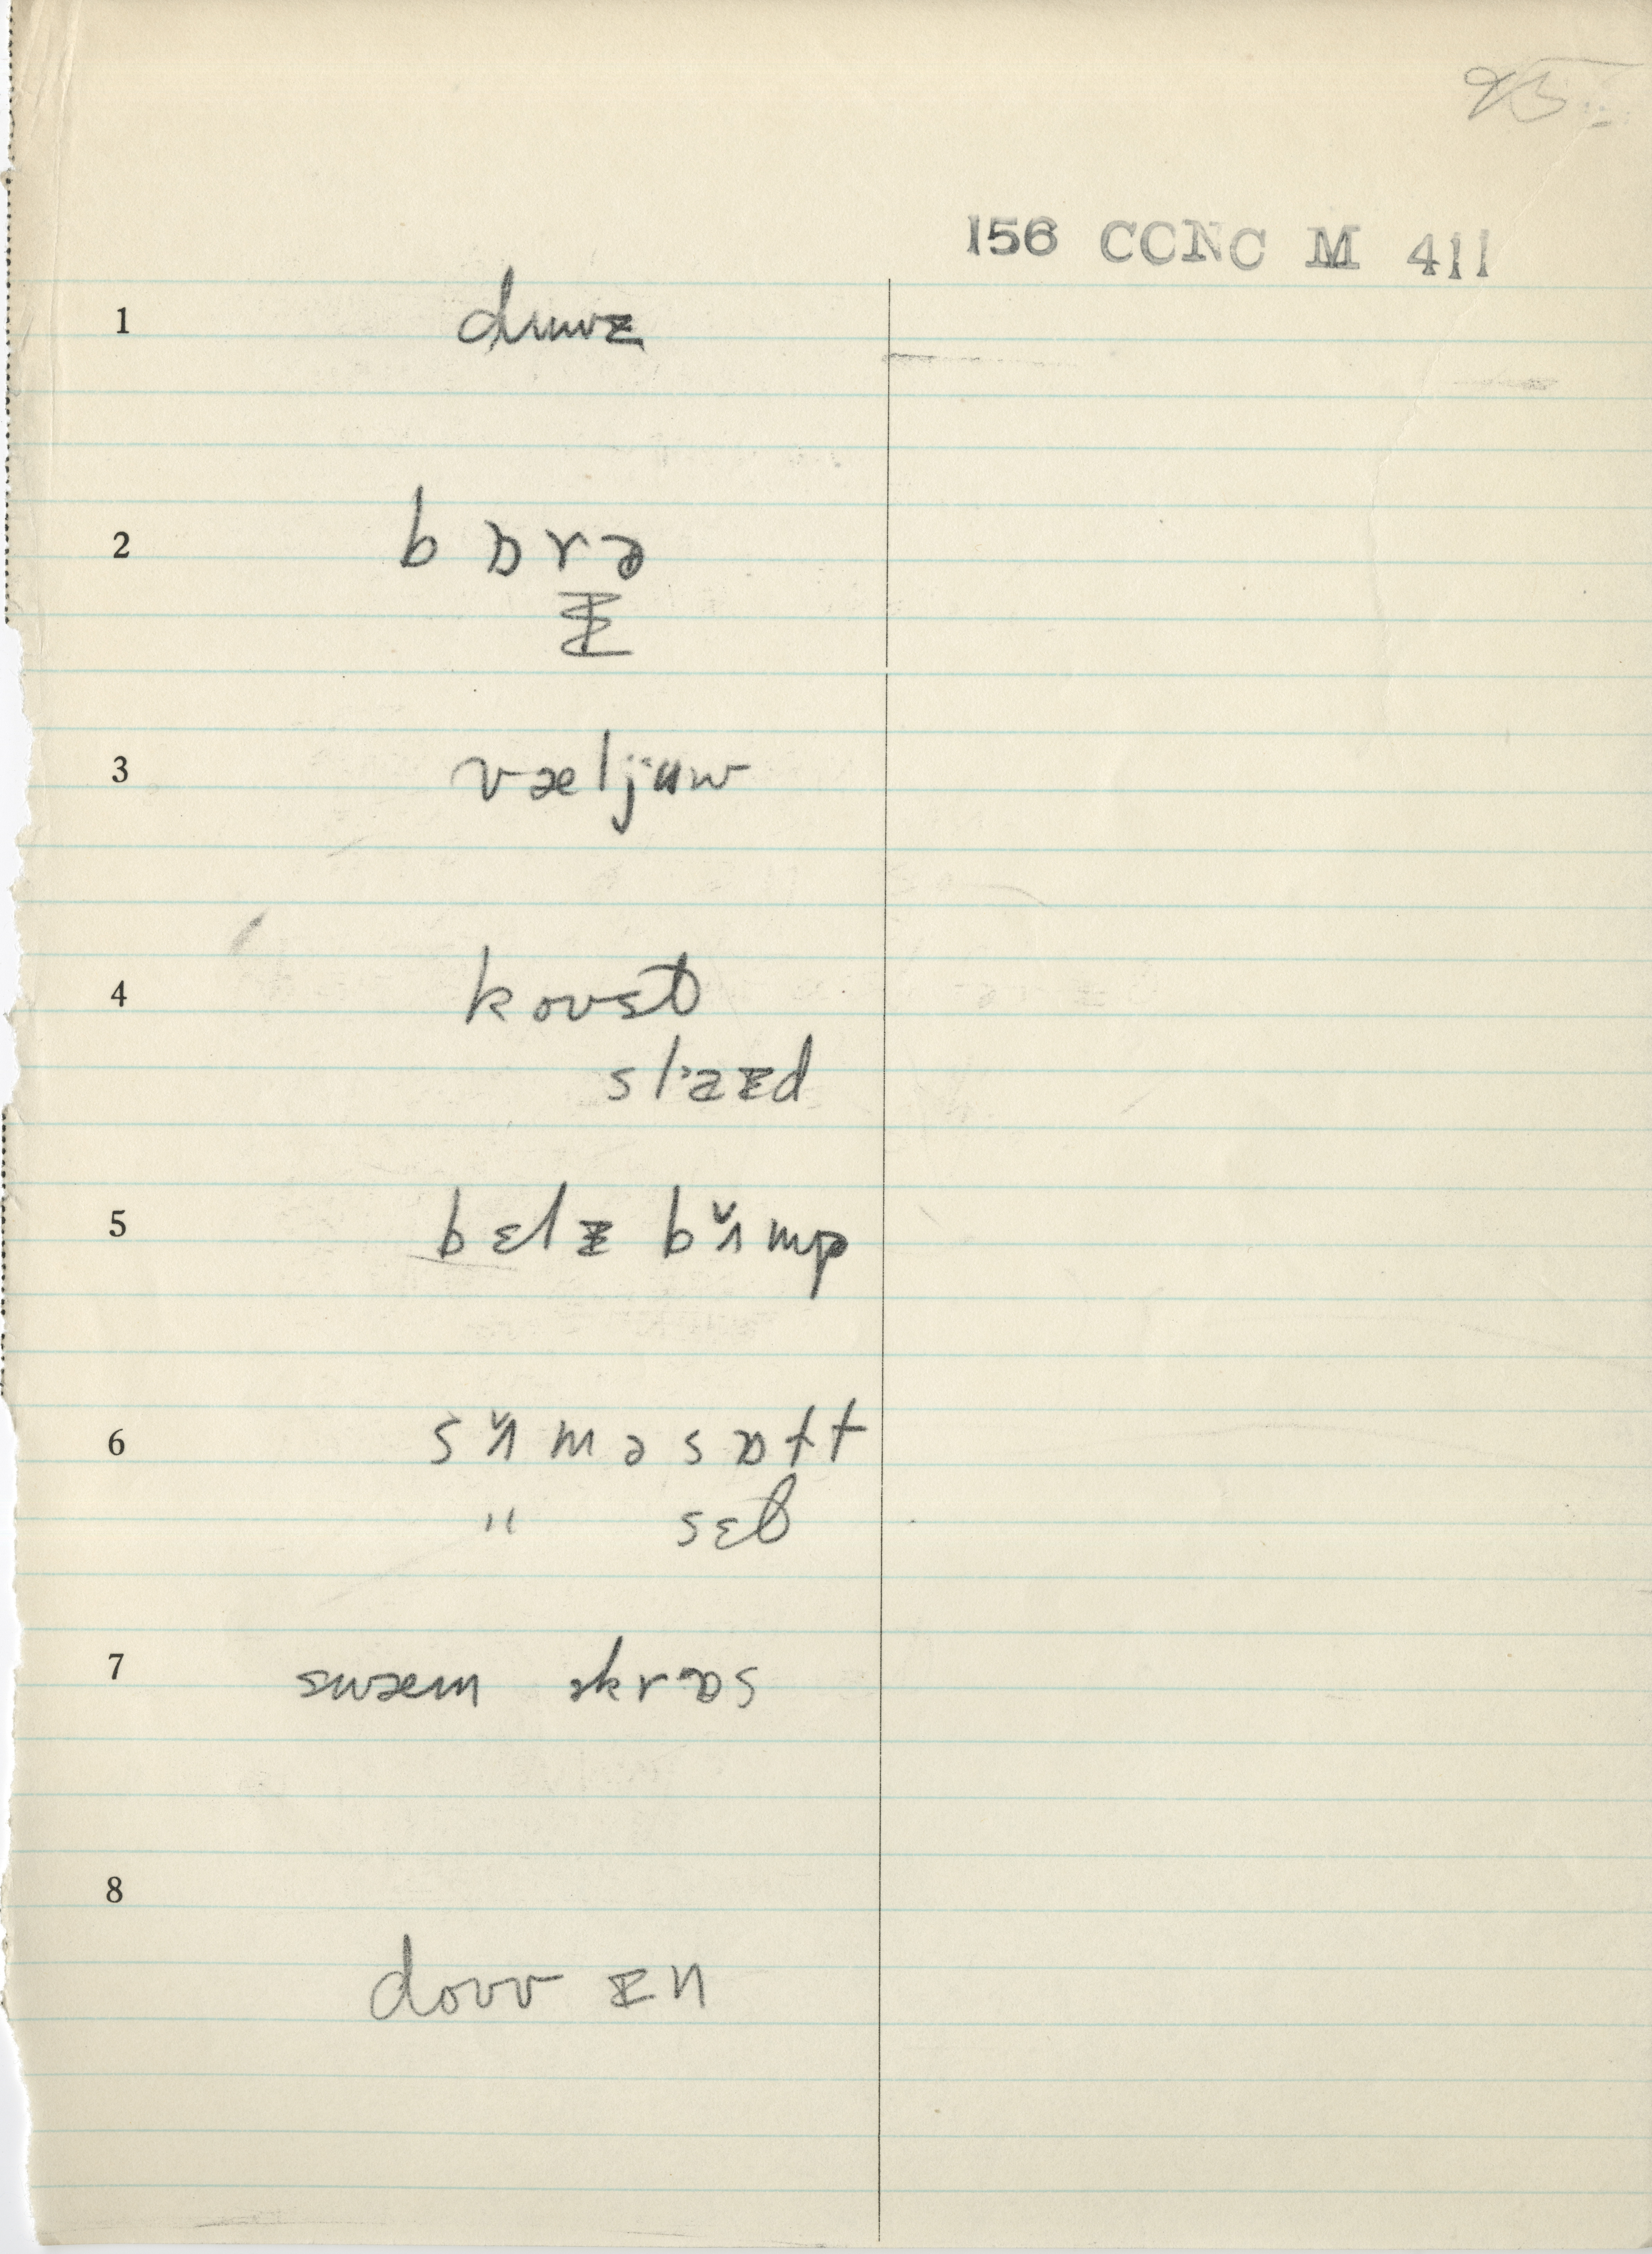 156 CCNC M 411
1 duwz
2 b ɒ r ə
3 væljuw
4 kovst
sl'æzd
5 bɛlz bʌ̌mp
6 s ʌ̌ m ə s ɒ t t
" sɛt
7 swæm əkrɒs
8
dovv ɪn